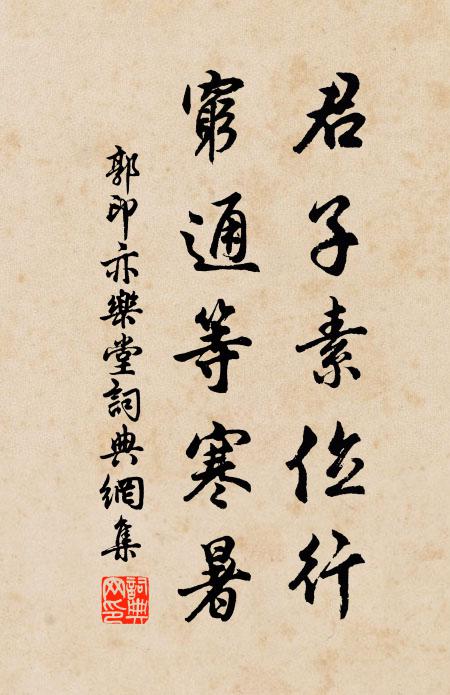 君子素位行
窮通等寒暑
郭印亦樂堂詞典網集
詞典網印